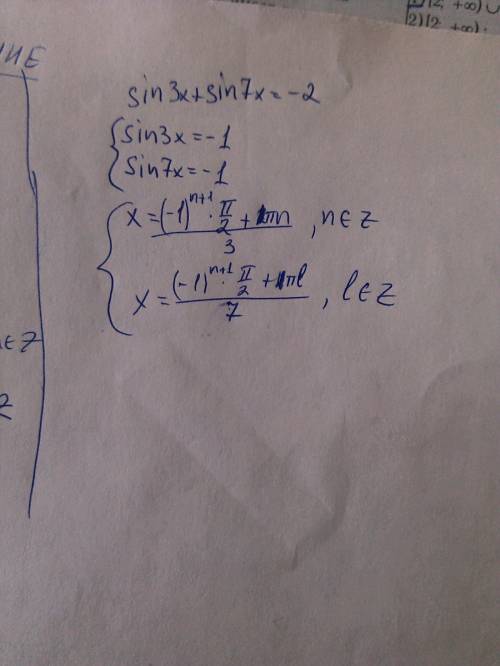 +∞) ∪
2) (2, +∞).
sin3x+sin7x=-2
{ sin3x=-1
sin7x=-1
{ x = ((-1)^{n+1} · π/2 + πn) / 3 , n∈Z
x = ((-1)^{n+1} · π/2 + πl) / 7 , l∈Z
∈Z